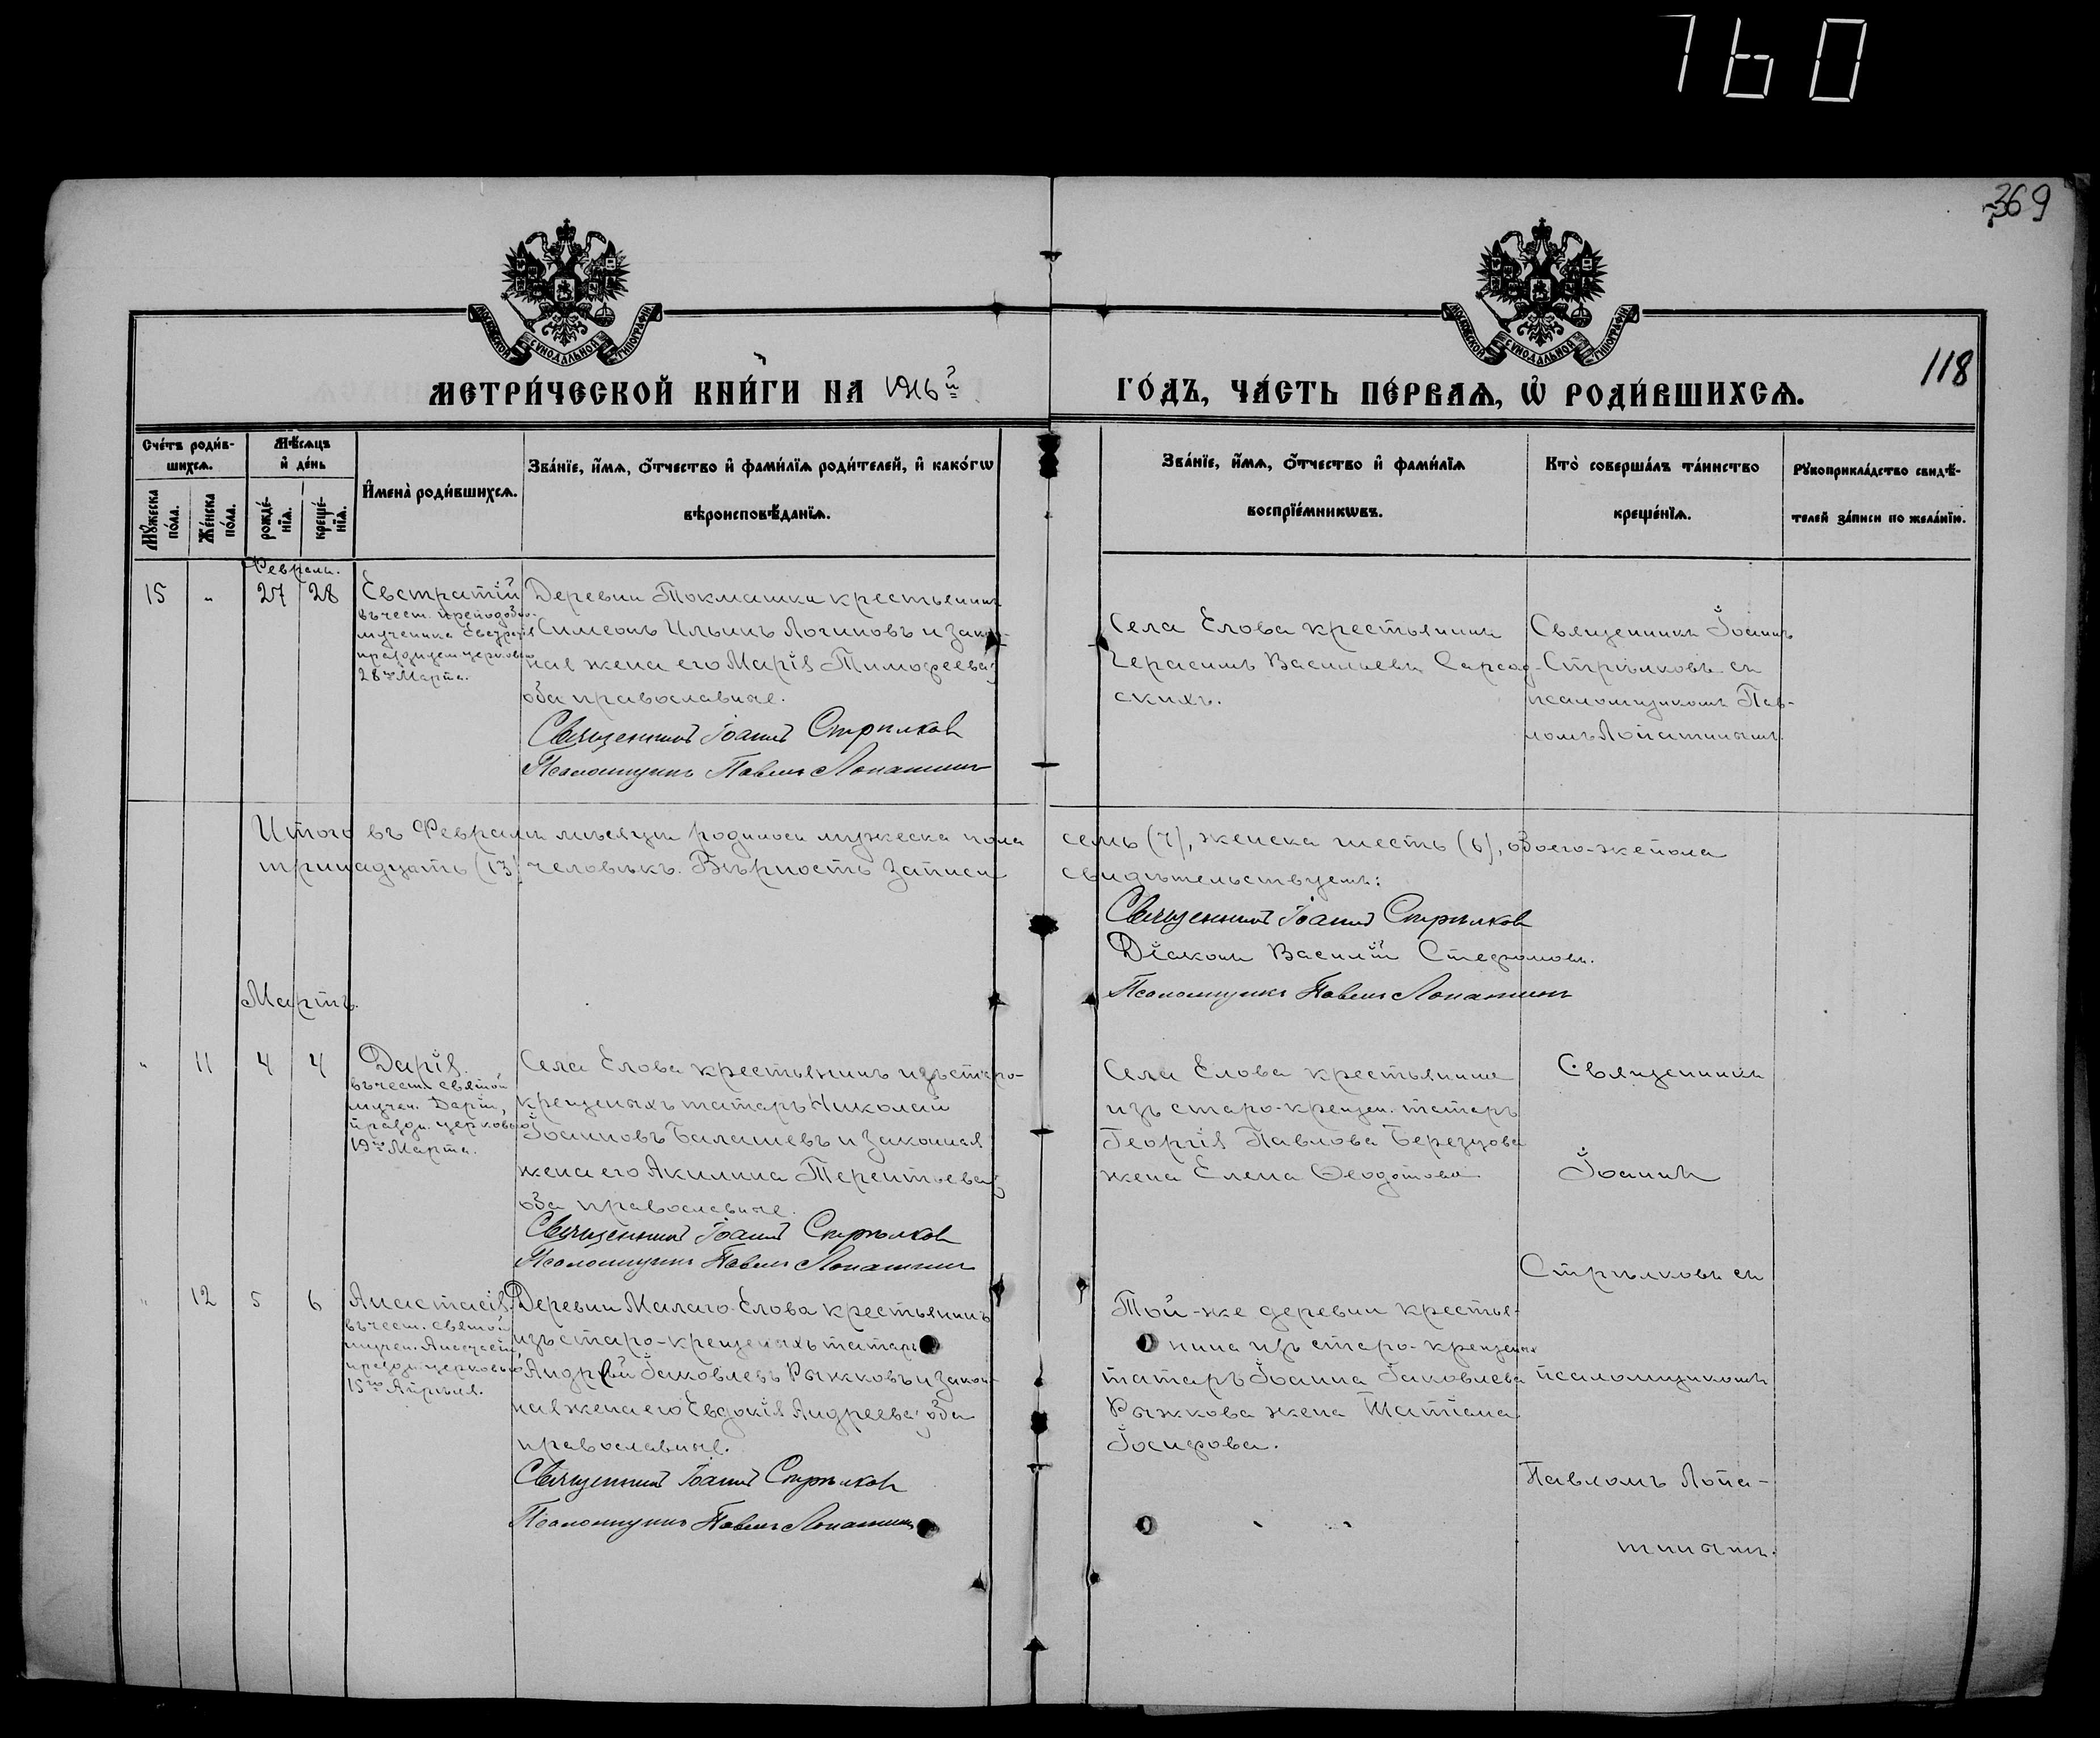 760
369
118
МОСКОВСКОЙ СѴНОДАЛЬНОЙ ТИПОГРАФІИ
МОСКОВСКОЙ СѴНОДАЛЬНОЙ ТИПОГРАФІИ
МЕТРИ́ЧЕСКОЙ КНИ́ГИ НА 1916й
ГО́ДЪ, ЧА́СТЬ ПЕ́РВАѦ, Ѡ҆ РОДИ́ВШИХСѦ.
Сче́тъ роди́в-
шихсѧ.
Мꙋ́жеска
по́ла.
Же́нска
по́ла.
Мѣ́сѧцъ
и҆ де́нь
рожде́-
нїѧ.
креще́-
нїѧ.
И҆мена̀ роди́вшихсѧ.
Зва́нїе, и҆́мѧ, ѻ҆́тчество и҆ фами́лїѧ роди́телей, и҆ како́гѡ
вѣроисповѣ́данїѧ.
Зва́нїе, и҆́мѧ, ѻ҆́тчество и҆ фами́лїѧ
воспрїе́мникѡвъ.
Кто̀ соверша́лъ та́инство
креще́нїѧ.
Рꙋкоприкла́дство свидѣ́-
телей за́писи по жела́нїю.
Февраль.
15 " 27 28
Евстратій
въ чест. преподобно-
мученика Евстратія
празднуем. церковью
28го Марта.
Деревни Токмашки крестьянинъ
Симеонъ Ильинъ Логиновъ и закон-
ная жена его Марія Тимофеева;
оба православные.
Священникъ Іоаннъ Стрѣлковъ
Псаломщикъ Павелъ Лопатинъ
Села Елова крестьянинъ
Герасимъ Васильевъ Сарсад-
скихъ.
Священникъ Іоаннъ
Стрѣлковъ съ
псаломщикомъ Пав-
ломъ Лопатинымъ.
Итого въ Февралѣ мѣсяцѣ родилось мужеска пола семь (7), женска шесть (6), обоего-же пола
тринадцать (13) человѣкъ. Вѣрность записи свидѣтельствуемъ:
Священникъ Іоаннъ Стрѣлковъ
Діаконъ Василій Стефановъ.
Псаломщикъ Павелъ Лопатинъ
Мартъ.
" 11 4 4
Дарія.
въ чест. святой
мучен. Даріи,
праздн. церковью
19го Марта.
Села Елова крестьянинъ изъ старо-
крещеныхъ татаръ Николай
Іоанновъ Балашевъ и законная
жена его Акилина Терентьева;
оба православные.
Священникъ Іоаннъ Стрѣлковъ
Псаломщикъ Павелъ Лопатинъ
Села Елова крестьянина
изъ старо-крещен. татаръ
Георгія Павлова Березцова
жена Елена Ѳеодотова
Священникъ
Іоаннъ
Стрѣлковъ съ
псаломщикомъ
Павломъ Лопа-
тинымъ.
" 12 5 6
Анастасія.
въ чест. святой
мучен. Анастасіи,
праздн. церковью
15го Апрѣля.
Деревни Малаго-Елова крестьянинъ
изъ старо-крещеныхъ татаръ
Андрей Іаковлевъ Рыжковъ и закон-
ная жена его Евдокія Андреева; оба
православные.
Священникъ Іоаннъ Стрѣлковъ
Псаломщикъ Павелъ Лопатинъ
Той-же деревни крестья-
нина изъ старо-крещеных
татаръ Іоанна Іаковлева
Рыжкова жена Татіана
Іосифова.